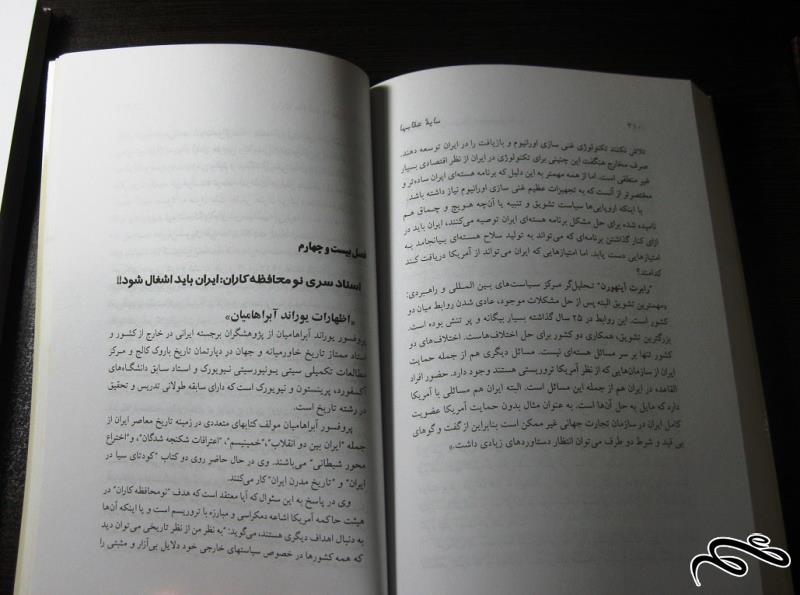 ۳۱۰
سایهٔ عقابها
تلاش نکنند تکنولوژی غنی سازی اورانیوم و بازیافت را در ایران توسعه دهند.
صرف مخارج هنگفت این چنینی برای تکنولوژی در ایران از نظر اقتصادی بسیار
غیر منطقی است. اما از همه مهمتر به این دلیل که برنامه هسته‌ای ایران ساده‌تر و
مختصرتر از آنست که به تجهیزات عظیم غنی سازی اورانیوم نیاز داشته باشد.
با اینکه اروپایی‌ها سیاست تشویق و تنبیه یا آن‌چه هویج و چماق هم
نامیده شده برای حل مشکل برنامه هسته‌ای ایران توصیه می‌کنند، ایران باید در
ازای کنار گذاشتن برنامه‌ای که می‌تواند به تولید سلاح هسته‌ای بیانجامد به
امتیازهایی دست یابد. اما امتیازهایی که ایران می‌تواند از آمریکا دریافت کند
کدامند؟
"رابرت آینهورن" تحلیل‌گر مرکز سیاست‌های بین المللی و راهبردی:
«مهمترین تشویق البته پس از حل مشکلات موجود، عادی شدن روابط میان دو
کشور است. این روابط در ۲۵ سال گذشته بسیار بیگانه و پر تنش بوده است.
بزرگترین تشویق، همکاری دو کشور برای حل اختلاف‌هاست. اختلاف‌های دو
کشور تنها بر سر مسائل هسته‌ای نیست. مسائل دیگری هم از جمله حمایت
ایران از سازمان‌هایی که از نظر آمریکا تروریستی هستند وجود دارد. حضور افراد
القاعده در ایران هم از جمله این مسائل است. البته ایران هم مسائلی با آمریکا
دارد که مایل به حل آن‌ها است. به عنوان مثال بدون حمایت آمریکا عضویت
کامل ایران در سازمان تجارت جهانی غیر ممکن است بنابراین از گفت و گوهای
بی قید و شرط دو طرف می‌توان انتظار دستاوردهای زیادی داشت.»
فصل بیست و چهارم
اسناد سری نو محافظه کاران: ایران باید اشغال شود!!
«اظهارات یوراند آبراهامیان»
پروفسور یوراند آبراهامیان از پژوهشگران برجسته ایرانی در خارج از کشور و
استاد ممتاز تاریخ خاورمیانه و جهان در دپارتمان تاریخ باروک کالج و مرکز
مطالعات تکمیلی سیتی یونیورسیتی نیویورک و استاد سابق دانشگاه‌های
آکسفورد، پرینستون و نیویورک است که دارای سابقه طولانی تدریس و تحقیق
در رشته تاریخ است.
پروفسور آبراهامیان مولف کتابهای متعددی در زمینه تاریخ معاصر ایران از
جمله "ایران بین دو انقلاب"، "خمینیسم"، "اعترافات شکنجه شدگان"، و "اختراع
محور شیطانی" می‌باشند. وی در حال حاضر روی دو کتاب "کودتای سیا در
ایران" و "تاریخ مدرن ایران" کار می‌کنند.
وی در پاسخ به این سئوال که آیا معتقد است که هدف "نومحافظه کاران" در
هیئت حاکمه آمریکا اشاعه دمکراسی و مبارزه با تروریسم است و یا اینکه آن‌ها
به دنبال اهداف دیگری هستند، می‌گوید: "به نظر من از نظر تاریخی می‌توان دید
که همه کشورها در خصوص سیاستهای خارجی خود دلایل بی‌آزار و مثبتی را